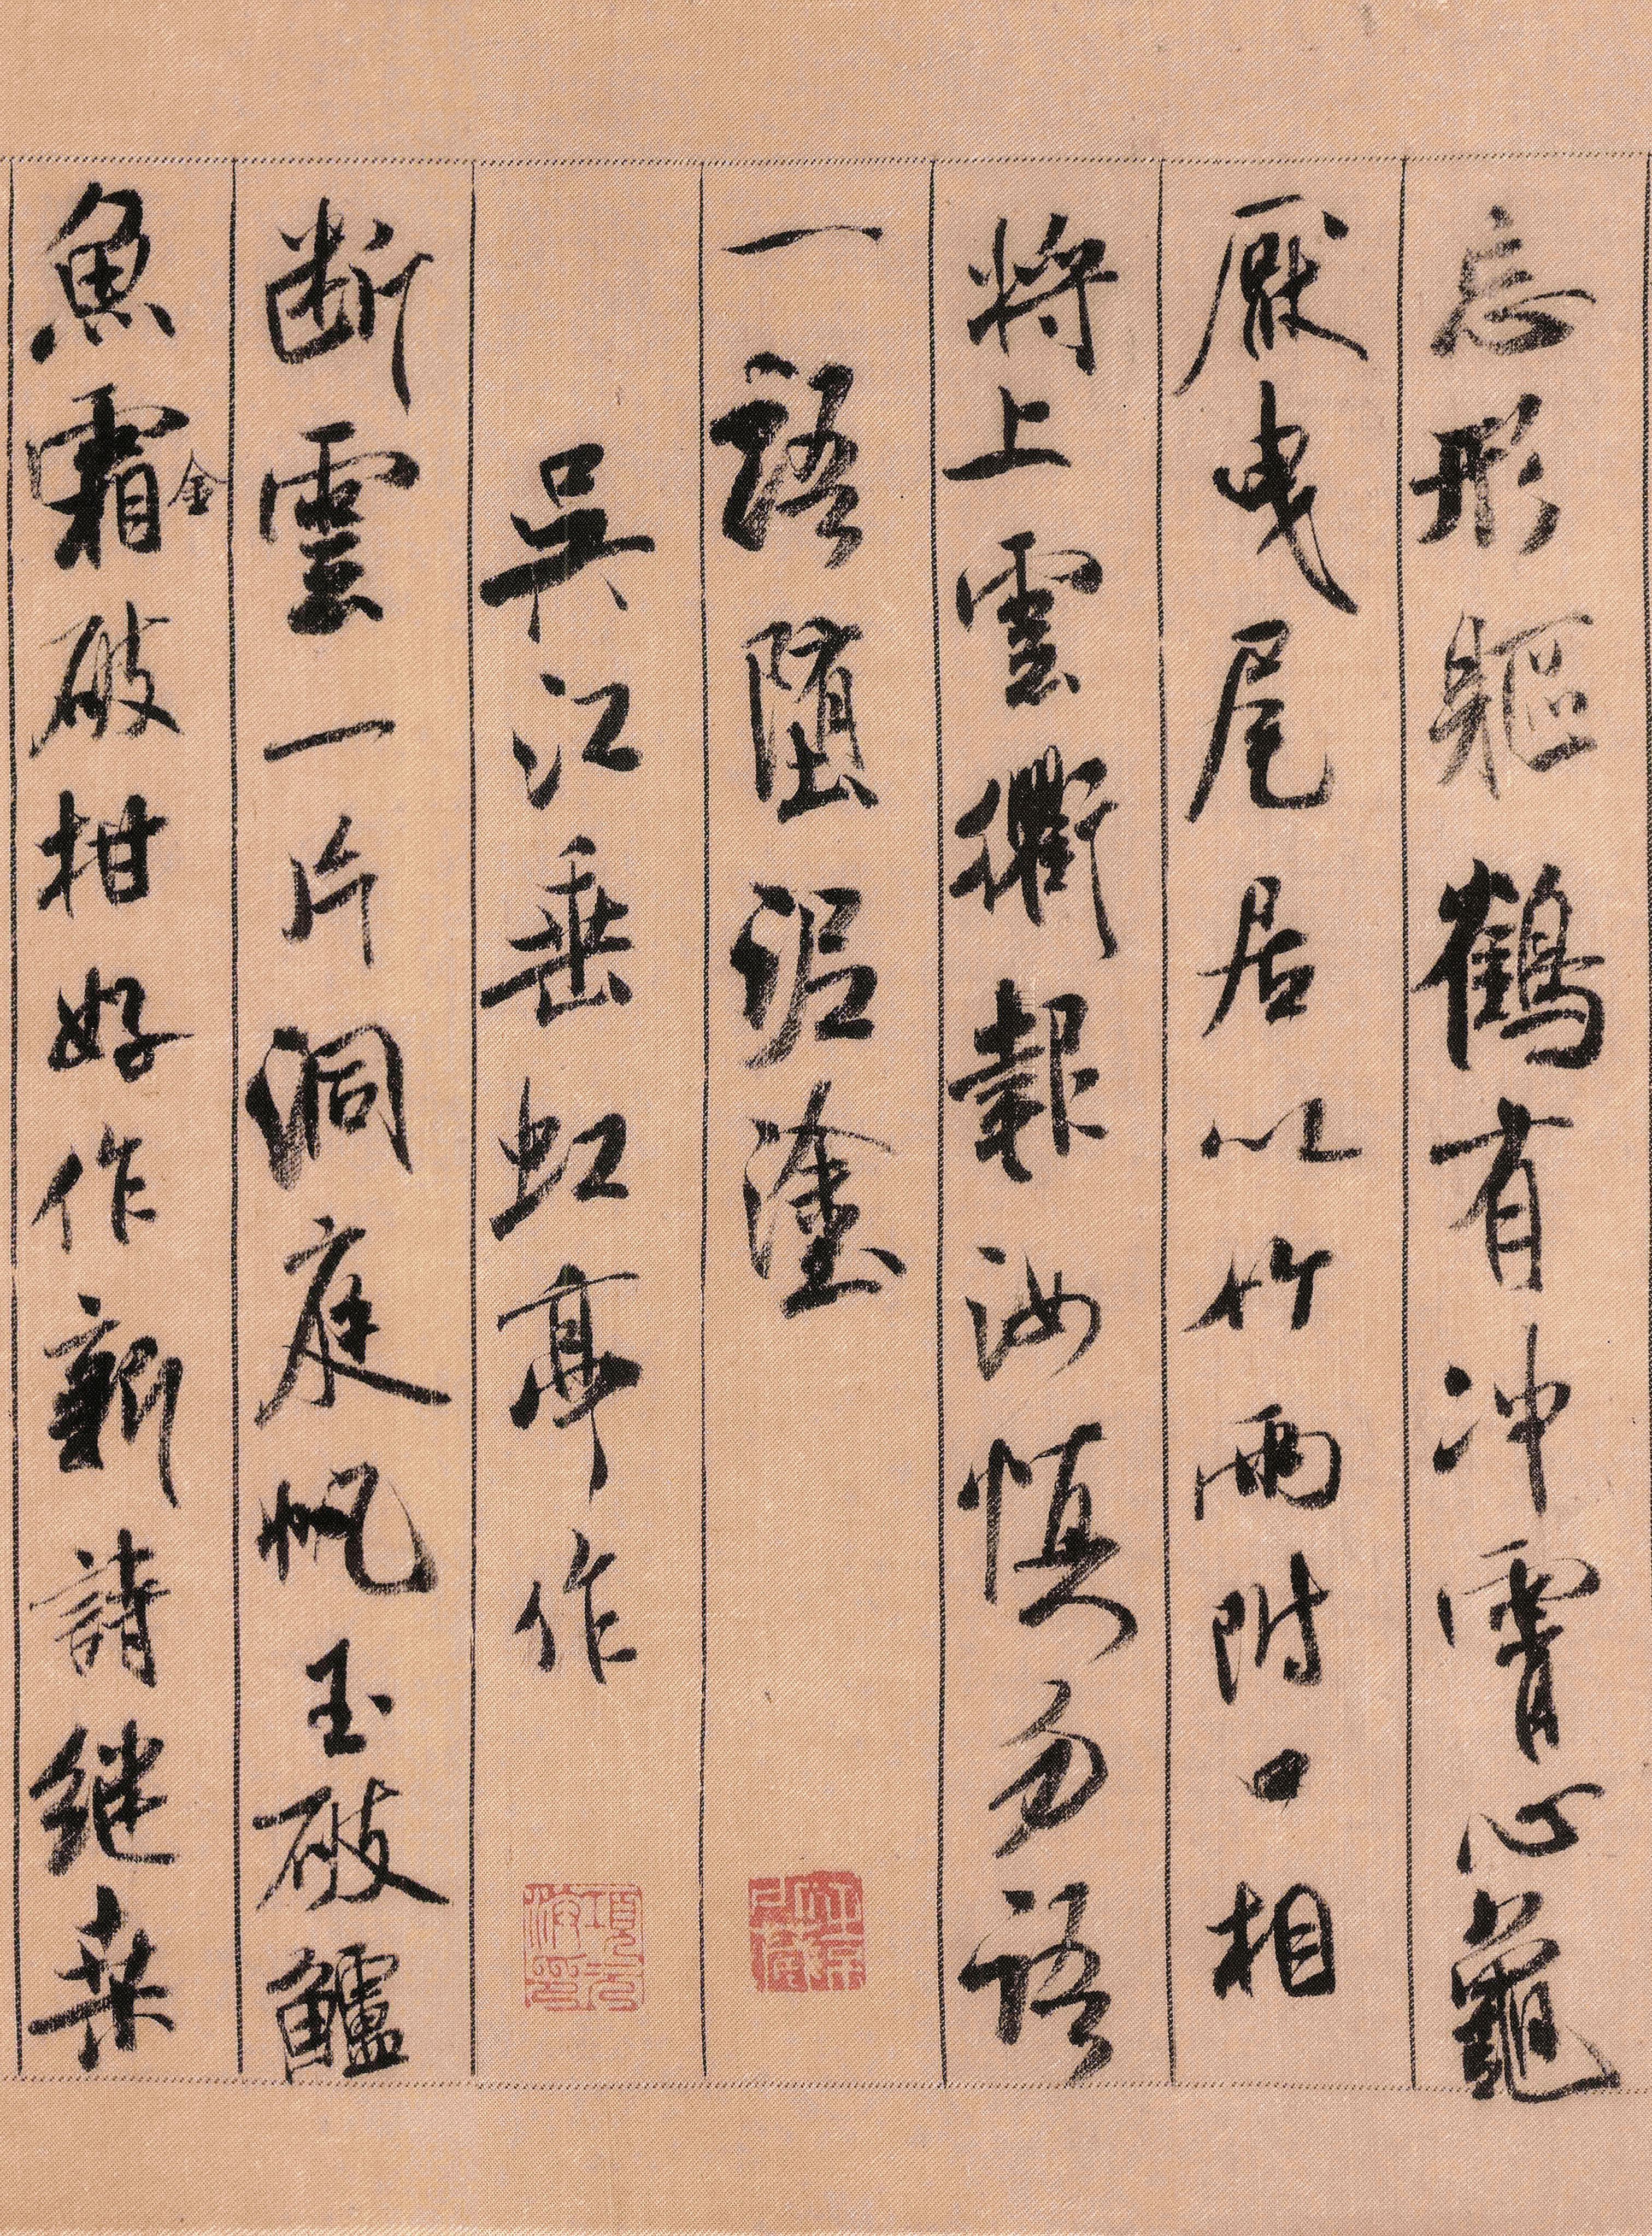 忘形軀鶴有沖霄心龜
厭曳尾居以竹兩附口相
將上雲衢報汝慎勿語
一語墮泥塗
吳江垂虹亭作
斷雲一片洞庭帆玉破鱸
魚霜金破柑好作新詩繼桑